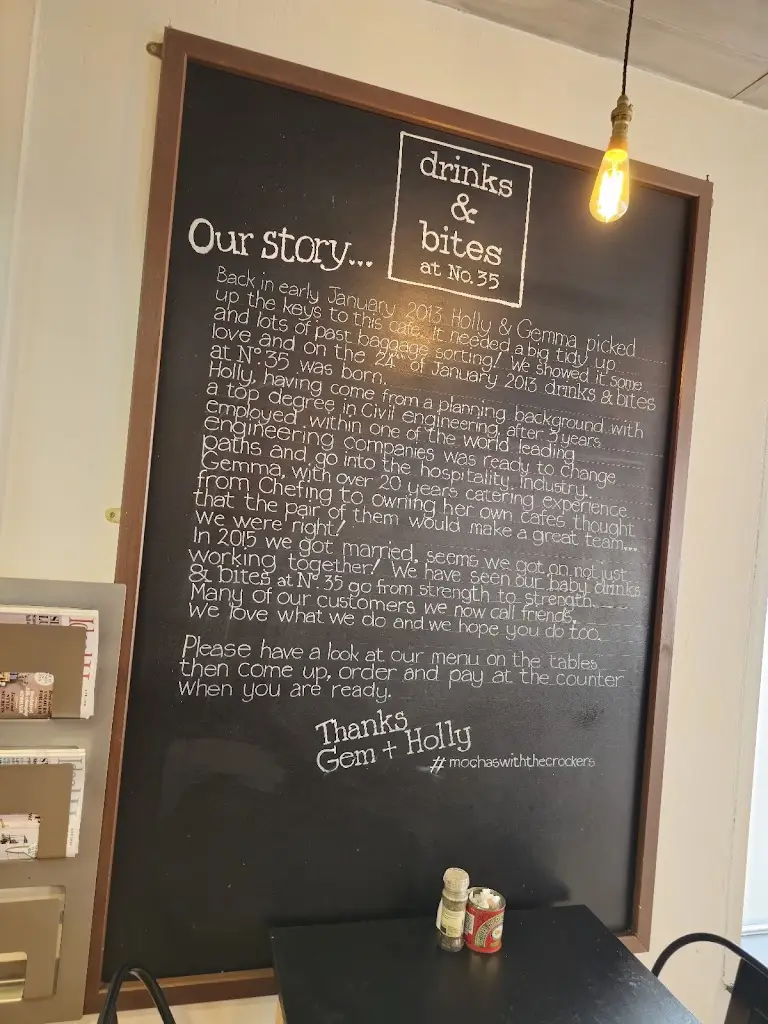 drinks
&
bites
at No.35
Our story...
Back in early January 2013 Holly & Gemma picked
up the keys to this cafe. It needed a big tidy up
and lots of past baggage sorting! We showed it some
love and on the 24th of January 2013 drinks & bites
at No 35 was born.
Holly, having come from a planning background with
a top degree in Civil engineering, after 3 years
employed within one of the world leading
engineering companies was ready to change
paths and go into the hospitality industry.
Gemma, with over 20 years catering experience
from Chefing to owning her own cafes thought
that the pair of them would make a great team...
we were right!
In 2015 we got married, seems we got on not just
working together! We have seen our baby drinks
& bites at No 35 go from strength to strength.
Many of our customers we now call friends,
we love what we do and we hope you do too.
Please have a look at our menu on the tables
then come up, order and pay at the counter
when you are ready.
Thanks
Gem + Holly
# mochaswiththecrockers